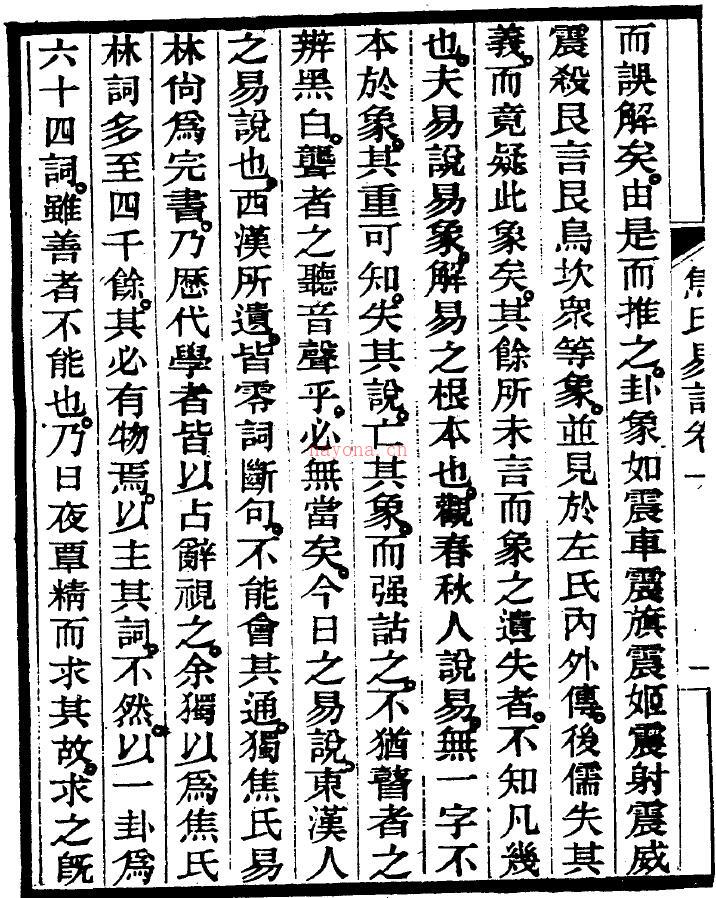 而誤解矣。由是而推之。卦象如震車震旂震姬震射震威
震殺艮言艮鳥坎衆等象。並見於左氏內外傳。後儒失其
義。而竟疑此象矣。其餘所未言而象之遺失者。不知凡幾
也。夫易說易象。解易之根本也。觀春秋人說易。無一字不
本於象。其重可知。失其說。亡其象。而强詁之。不猶瞽者之
辨黑白。聾者之聽音聲乎。必無當矣。今日之易說。東漢人
之易說也。西漢所遺。皆零詞斷句。不能會其通。獨焦氏易
林尙爲完書。乃歷代學者皆以占辭視之。余獨以爲焦氏
林詞多至四千餘。其必有物焉。以主其詞。不然。以一卦爲
六十四詞。雖善者不能也。乃日夜覃精而求其故。求之旣
焦氏易詁卷一
一
nayona.cn